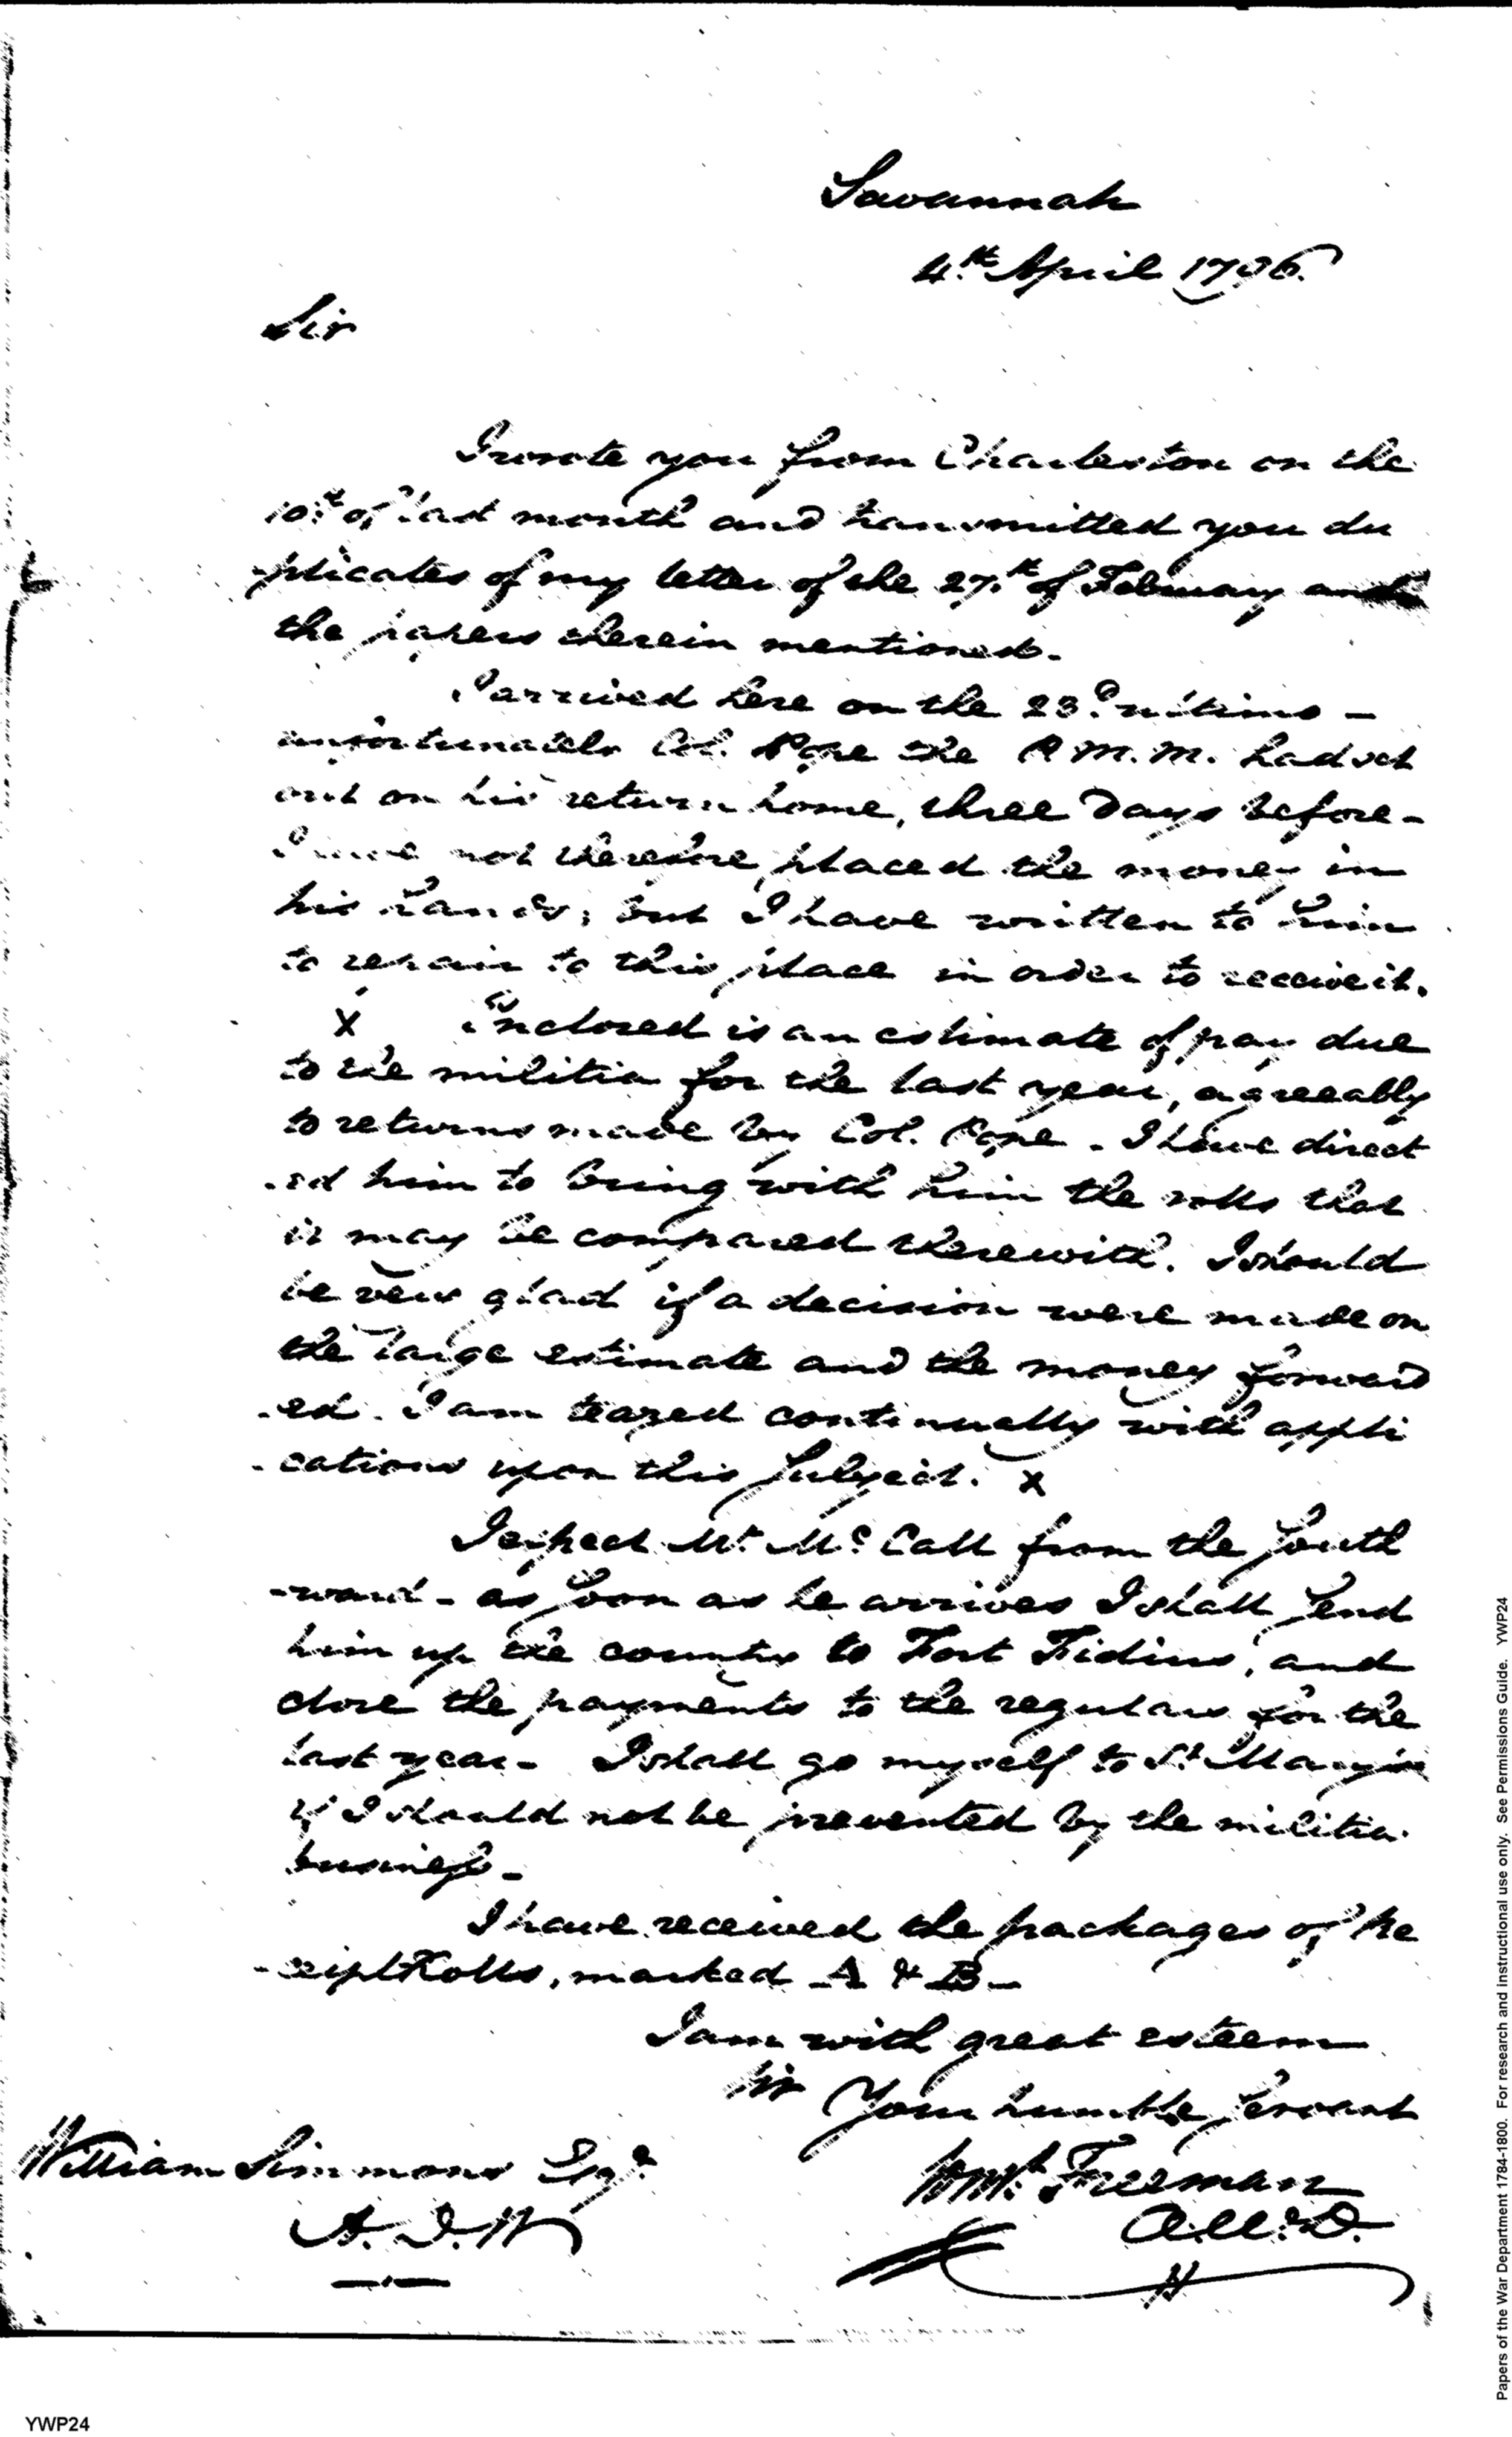 Savannah
4th April 1796.
Sir
I wrote you from Charleston on the
10th of last month and transmitted you du
plicates of my letter of the 27th of February and
the papers therein mentioned.
I arrived here on the 23d ultimo -
unfortunately Col. Pope the P. M. M. had set
out on his return home, three days before -
I have not therefore placed the money in
his hands; but I have written to him
to repair to this place in order to receive it.
X Enclosed is an estimate of pay due
to the militia for the last year, agreeably
to returns made by Col. Pope. I have direct
-ed him to bring with him the rolls that
it may be compared therewith. I should
be very glad if a decision were made on
the large estimate and the money forward
-ed. I am teazed continually with appli
-cations upon this Subject. X
I expect Mr. McCall from the South
-ward - as soon as he arrives I shall send
him up the country to Fort Fidius, and
close the payments to the regulars for the
last year - I shall go myself to St. Mary's
if I should not be prevented by the militia
business -
I have received the packages of Re
-ceipt Rolls, marked A & B -
I am with great esteem
Sir Your humble Servant
Freeman
William Simmons Esqr.
A. D. W
YWP24
Papers of the War Department 1784-1800. For research and instructional use only. See Permissions Guide. YWP24